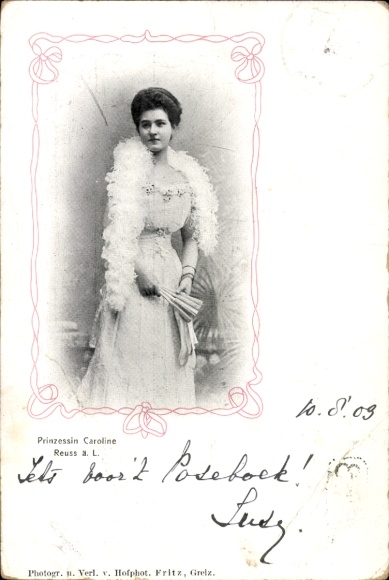 10. 8' 03
Prinzessin Caroline
Reuss ä. L.
Iets voor't Poseboek!
Lusy.
Photogr. u. Verl. v. Hofphot. Fritz, Greiz.